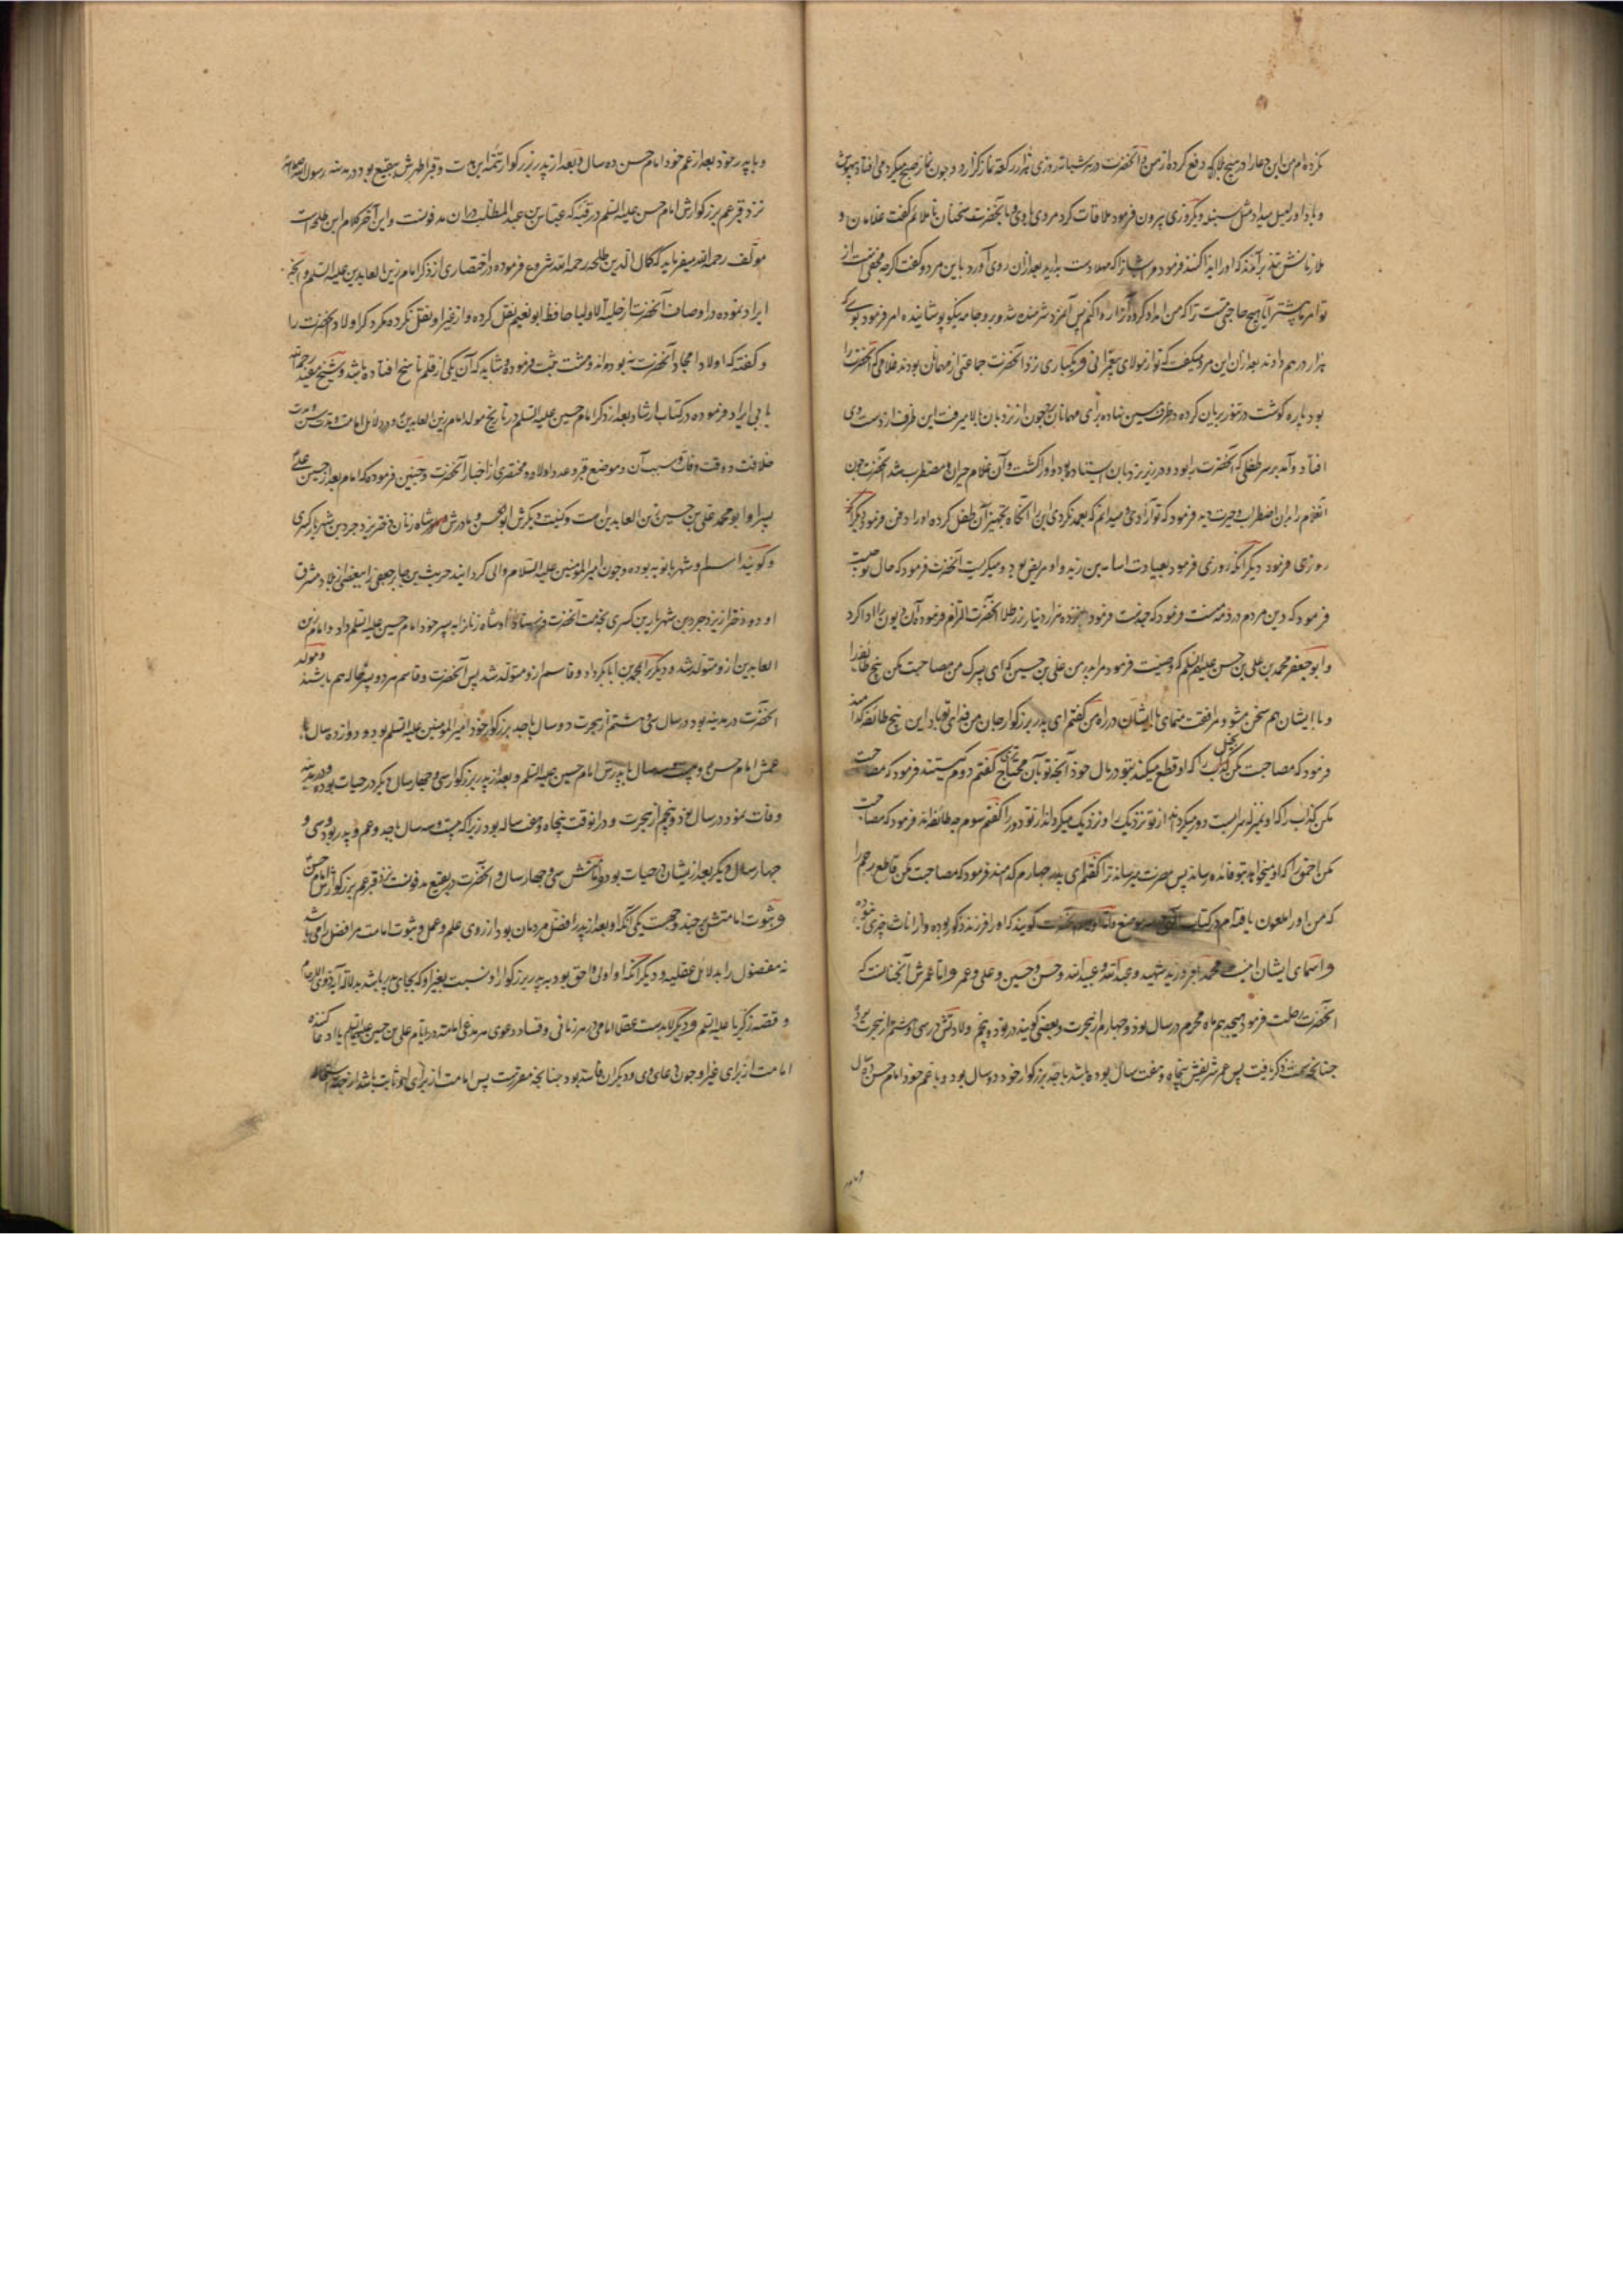 نکرده‌ام من این دعا را در هیچ بلا که دفع کرده از من و آنحضرت در هر شبانه روزی هزار رکعت نماز کزارد و چون نماز صبح میکرد می افتاد بیهوش
و باد او را میل میداد مثل سنبله و دیگر روزی بیرون فرمود ملاقات کرد مردی با وی و با آنحضرت سخنان ناملائم گفت غلامان و
ملازمانش برآمدند که او را ایذا کنند فرمود بعد از آن روی آورد با این مرد و گفت آنچه مخفی است از
تو امر ما بیشتر آیا هیچ حاجتی هست ترا که من امداد کرده آنرا روا کنم پس آنمرد شرمنده شد و برو جامه نیکو پوشانیده امر فرمود بوی که
هزار درهم دادند بعد از آن این مرد میگفت که تو از اولاد پیغمبرانی و یکباری نزد آنحضرت جماعتی از مهمانان بودند غلامی که آنحضرت را
بود پاره گوشت در تنور بریان کرده در ظرف مسین نهاده برای مهمانان چون از نردبان بالا میرفت این ظرف از دست وی
افتاد و آمد بر سر طفلی که آنحضرت را بود و در زیر نردبان ایستاده بود و او را کشت و آن غلام حیران و مضطرب شد آنحضرت چون
آنغلام را بدان اضطراب و حیرت دید فرمود که تو آزادی میدانم که بعمد نکردی این را آنگاه تجهیز آن طفل کرده او را دفن فرمود دیگر آنکه
روزی فرمود دیگر آنکه روزی فرمود بعیادت اسامه بن زید و او مریض بود و میگریست آنحضرت فرمود که حال تو چیست
فرمود که دین مردم در ذمه منست فرمود که چندست فرمود پانزده هزار دینار زر طلا آنحضرت التزام فرموده آن دیون را ادا کرد
و ابو جعفر محمد بن علی بن حسین علیهم السلم که وصیت فرمود مرا پدر من علی بن حسین که ای پسرک من مصاحبت مکن پنج طائفه را
و با ایشان هم سخن مشو و مرافقت منمای با ایشان در راه من گفتم ای پدر بزرکوار جان من فدای تو باد این پنج طائفه کدامند
فرمود که مصاحبت مکن بخیل را که او قطع میکند بتو در مال خود آنچه تو بآن محتاج تری گفتم دوم کیستند فرمود که مصاحبت
مکن کذاب را که او بمنزله سرابست دور میکرداند از تو نزدیک را و نزدیک میکرداند از تو دور را گفتم سوم چه طائفه‌اند فرمود که مصاحبت
مکن احمق را که او میخواهد بتو فائده رساند پس مضرت میرساند ترا گفتم ای پدر چهارم کدامند فرمود که مصاحبت مکن قاطع رحم را
که من او را ملعون یافته‌ام در کتاب گویند که او را فرزند ذکور بوده و از اناث چیزی نبوده
و اسمای ایشان اینست محمد باقر و زید شهید و عبدالله و عبیدالله و حسن و حسین و علی و عمر و اما عمرش آنچنانست که
آنحضرت رحلت فرمود هیجدهم ماه محرم در سال نود و چهارم از هجرت و بعضی گویند در نود و پنجم و ولادتش در سی و هشتم از هجرت بود
چنانچه سبقت ذکر یافت پس عمر شریفش پنجاه و هفت سال بوده باشد با جد بزرکوار خود دو سال بود و با عم خود امام حسن ده سال
و با پدر
و با پدر خود بعد از عم خود امام حسن ده سال و بعد از پدر بزرکوار تتمه این مدت و قبر اطهرش ببقیع بود در مدینه رسول الله صلی الله علیه
نزد قبر عم بزرکوارش امام حسن علیه السلم در قبه که عباس بن عبد المطلب در آن مدفونست و این آخر کلام ابن طلحه است
مولف رحمه الله میفرماید که کمال الدین طلحه رحمه الله شروع فرموده در اختصاری از ذکر امام زین العابدین علیه السلم و آنچه
ایراد نموده در اوصاف آنحضرت از حلیه الاولیا حافظ ابو نعیم نقل کرده و از غیر او نقل نکرده مکر ذکر اولاد آنحضرت را
و گفته که اولاد امجاد آنحضرت نه بوده‌اند و هشت ثبت فرموده و شاید که آن یکی از قلم ناسخ افتاده باشد و شیخ مفید رحمه الله
بابی ایراد فرموده در کتاب ارشاد بعد از ذکر امام حسین علیه السلم در تاریخ مولد امام زین العابدین و در دلائل امامت و قدر سن و مدت
خلافت و وقت وفات و سبب آن و موضع قبر و عدد اولاد و مختصری از اخبار آنحضرت و چنین فرموده که امام بعد از حسین علی
پسر او ابو محمد علی بن حسین زین العابدین است و کنیت دیگرش ابو الحسن و مادرش شاه زنان دختر یزدجرد بن شهریار کسری
و گویند اسم او شهربانویه بوده و چون امیر المومنین علیه السلام والی کردانید حریث بن جابر جعفی را ببعضی از بلاد مشرق
او دو دختر از یزدجرد بن شهریار بن کسری بخدمت آنحضرت فرستاد و شاه زنانرا به پسر خود امام حسین علیه السلم داد و امام زین
العابدین ازو متولد شد و دیگر را بمحمد بن ابابکر داد و قاسم ازو متولد شد پس آنحضرت و قاسم هر دو پسر خاله هم باشند و مولد
آنحضرت در مدینه بود در سال سی و هشتم از هجرت دو سال با جد بزرکوار خود امیر المومنین علیه السلم بود و دوازده سال با
عمش امام حسن و بیست سه سال با پدرش امام حسین علیه السلم و بعد از پدر بزرکوار سی و چهار سال دیگر در حیات بوده و در مدینه
وفات نمود در سال نود و پنجم از هجرت و در انوقت پنجاه و هفت ساله بود زیرا که بیست و سه سال با جد و عم و پدر بود و سی و
چهار سال دیگر بعد از یشان در حیات بود و امامتش سی و چهار سال و آنحضرت در بقیع مدفونست نزد قبر عم بزرکوارش امام حسن
و ثبوت امامتش بر چند وجهست یکی آنکه او بعد از پدر افضل مردمان بود از روی علم و عمل و ثبوت امامت مر افضل را می باشد
نه مفضول را بدلائل عقلیه و دیگر آنکه او اولی و احق بود به پدر بزرکوار او نسبت بغیر او که بجای پدر باشد بدلالت آیه ذوی الارحام
و قصه زکریا علیه السلم و دیگر لابدست عقلا امامی در هر زمانی و فساد دعوی هر مدعی امامت در ایام علی بن حسین علیه السلم یا ادعا کننده
امامت از برای غیر او چون دعای وی و دیگران فاسد بود چنانچه مقررست پس امامت از برای او ثابت باشد